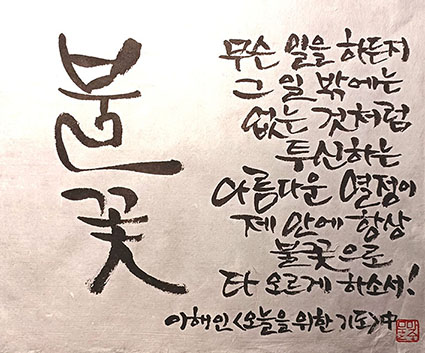 불꽃
무슨 일을 하든지
그 일 밖에는
없는 것처럼
투신하는
아름다운 열정이
제 안에 항상
불꽃으로
타 오르게 하소서!
이해인<오늘을 위한 기도>中